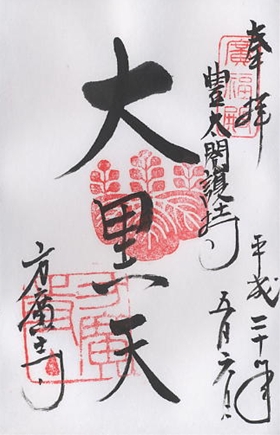 奉拝
廣福殿
平成二十年
五月六日
豊太閤護持
大黒天
方廣寺